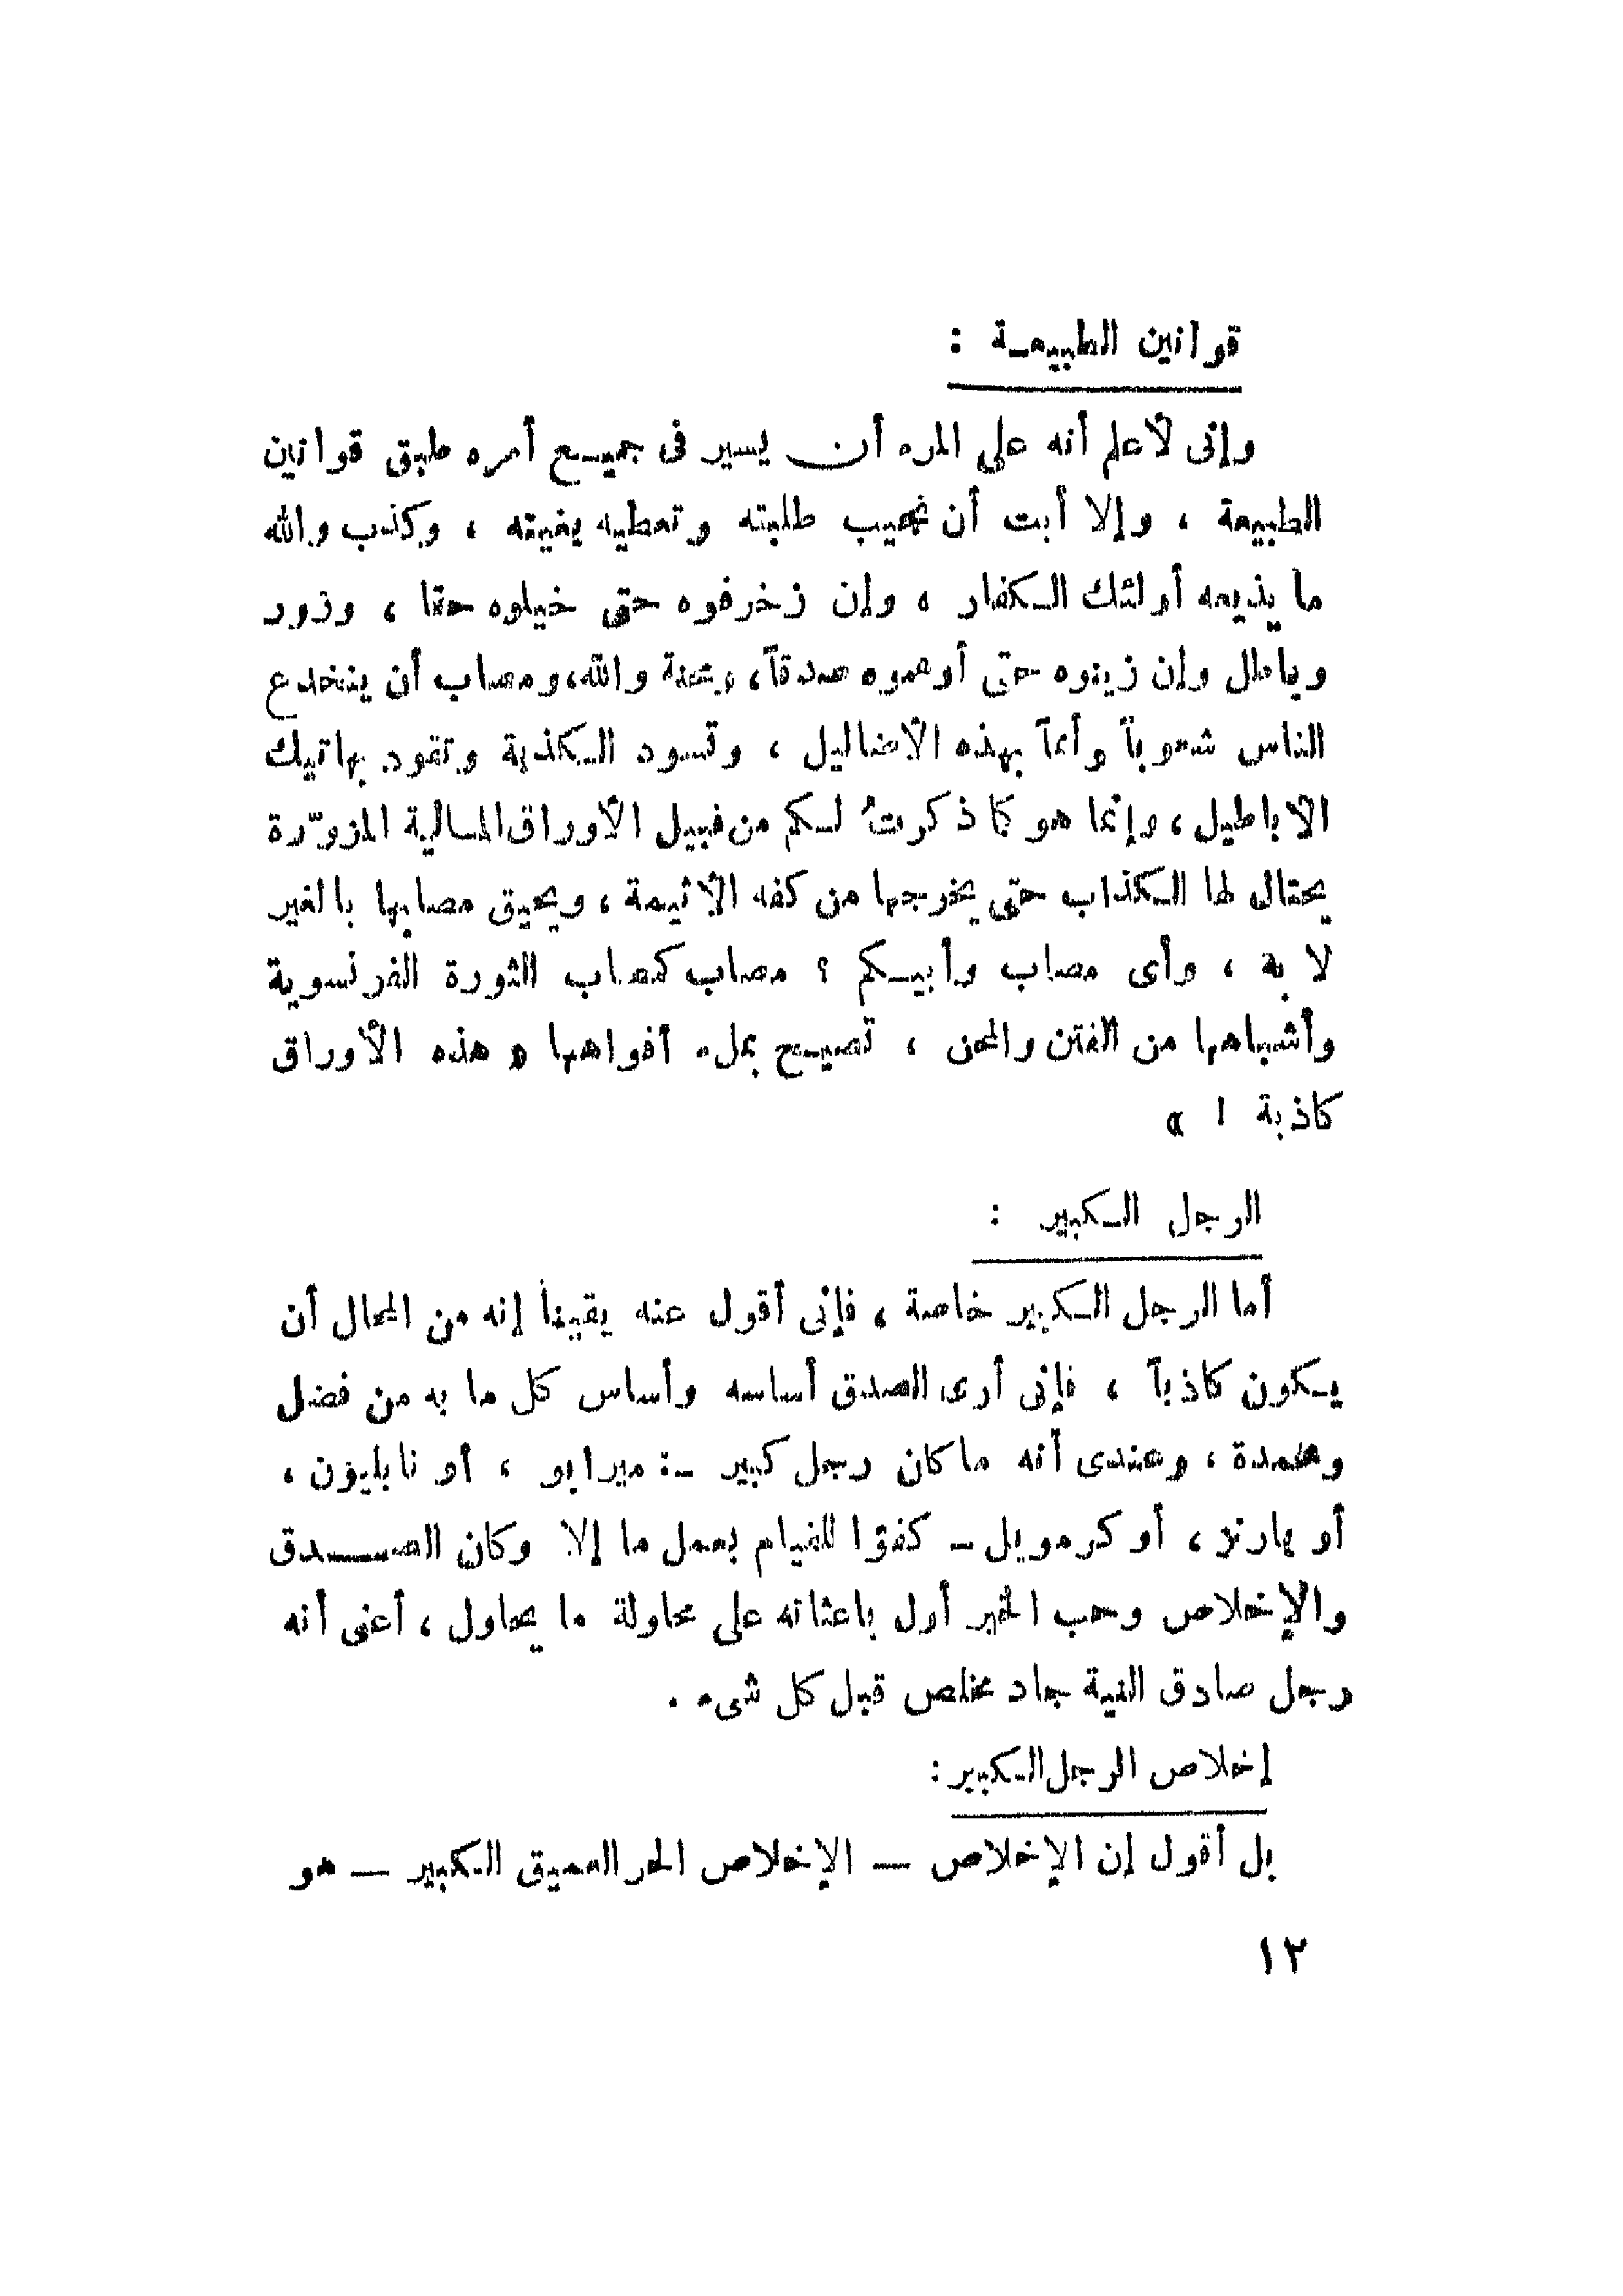 قوانين الطبيعـة :
وإنى لأعلم أنه على المرء أن يسير فى جميـع أمره طبق قوانين
الطبيعة ، وإلا أبت أن تجيب طلبته وتعطيه بغيته ، وكذب والله
ما يذيعه أولئك الـكفار ، وإن زخرفوه حتى خيلوه حقا ، وزور
وباطل وإن زينوه حتى أوهموه صدقاً، ومحنة والله، ومصاب أن ينخدع
الناس شعوباً وأمماً بهذه الأضاليل ، وتسود الـكذبة وتقود بهاتيك
الأباطيل ، وإنما هو كما ذكرتُ لـكم من قبيل الأوراق المـالية المزوّرة
يحتال لها الـكذاب حتى يخرجها من كفه الأثيمة ، ويحيق مصابها بالغير
لا به ، وأى مصاب وأبيـكم ؟ مصاب كمصاب الثورة الفرنسوية
وأشباهها من الفتن والمحن ، تصيـح بملء أفواهها « هذه الأوراق
كاذبة ! »
الرجل الـكبير :
أما الرجل الـكبير خاصة ، فإنى أقول عنه يقيناً إنه من المحال أن
يـكون كاذباً ، فإنى أرى الصدق أساسه وأساس كل ما به من فضل
ومحمدة ، وعندى أنه ما كان رجل كبير ـ: ميرابو ، أو نابليون ،
أو بارنز ، أو كرمويل ـ كفؤا للقيام بعمل ما إلا وكان الصـــدق
والإخلاص وحب الخير أول باعثاته على محاولة ما يحاول ، أعنى أنه
رجل صادق النية جاد مخلص قبل كل شىء .
إخلاص الرجل الـكبير :
بل أقول إن الإخلاص — الإخلاص الحر العميق الـكبير — هو
١٢